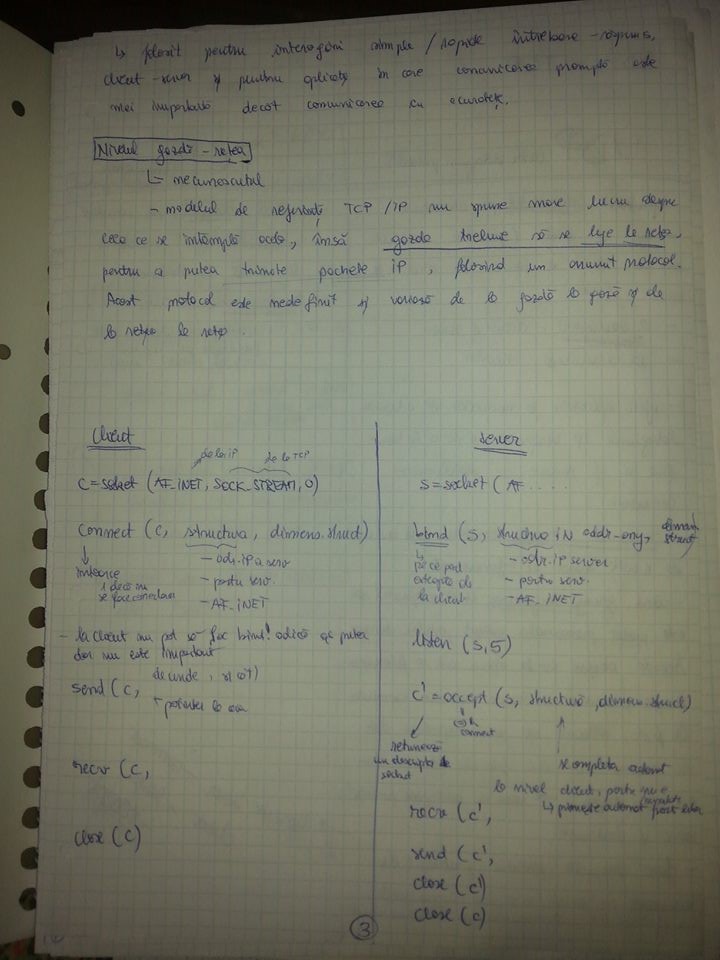 ↳ folosit pentru interogări simple / rapide întrebare-răspuns,
client-server și pentru aplicații în care comunicarea promptă este
mai importantă decât comunicarea cu acuratețe.
Nivelul gazdă-rețea
↳ necunoscutul
- modelul de referință TCP/IP nu spune mare lucru despre
ceea ce se întâmplă acolo, însă gazda trebuie să se lege la rețea,
pentru a putea trimite pachete IP, folosind un anumit protocol.
Acest protocol este nedefinit și variază de la gazdă la gazdă și de
la rețea la rețea.
Client
de la IP de la TCP
C=socket (AF_INET, SOCK_STREAM, 0)
connect (c, structura, dimens.struct)
↓ - adr.IP a serv
întoarce - portu serv.
1 dacă nu
se face conectarea
- AF_INET
- la client nu pot să fac bind! adică aș putea
dar nu este important
send (c, de unde, si cât)
pointer la
recv (c,
close (c)
Server
s=socket (AF......
bind (s, structura IN addr-any, dimens
struct)
↳ - adr.IP server
pe ce port
așteaptă de
la client
- portu serv.
- AF_INET
listen (s,5)
c'=accept (s, structură, dimens.struct)
connect
returnează
un descriptor de
socket
se completa automat
la nivel client, portu
↳ primește automat port liber
recv (c',
send (c',
close (c')
close (c)
3